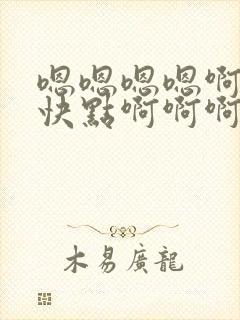 嗯嗯嗯嗯啊
快點啊啊啊
木易廣龍